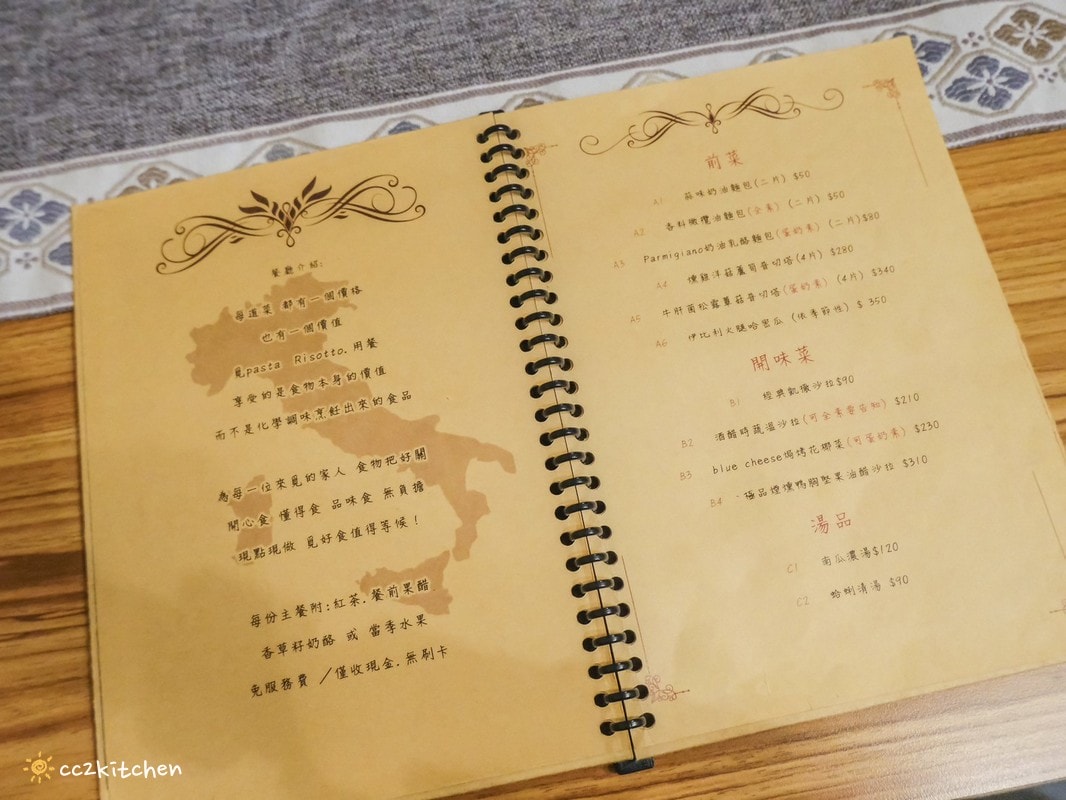 餐廳介紹:
每道菜 都有一個價格
也有一個價值
覓pasta Risotto.用餐
享受的是食物本身的價值
而不是化學調味烹飪出來的食品
為每一位來覓的家人 食物把好關
開心食 懂得食 品味食 無負擔
現點現做 覓好食值得等候！
每份主餐附:紅茶.餐前果醋
香草籽奶酪 或 當季水果
免服務費 /僅收現金.無刷卡
前菜
A1 蒜味奶油麵包(二片) $50
A2 香料橄欖油麵包(全素) (二片) $50
A3 Parmigiano奶油乳酪麵包(蛋奶素) (二片)$80
A4 燻雞洋菇蘆筍普切塔(4片) $280
A5 牛肝菌松露蘑菇普切塔(蛋奶素) (4片) $340
A6 伊比利火腿哈密瓜 (依季節性) $ 350
開味菜
B1 經典凱撒沙拉$90
B2 酒醋時蔬溫沙拉(可全素要告知) $210
B3 blue cheese焗烤花椰菜(可蛋奶素) $230
B4 極品煙燻鴨胸堅果油醋沙拉 $310
湯品
C1 南瓜濃湯$120
C2 蛤蜊清湯 $90
cc2kitchen